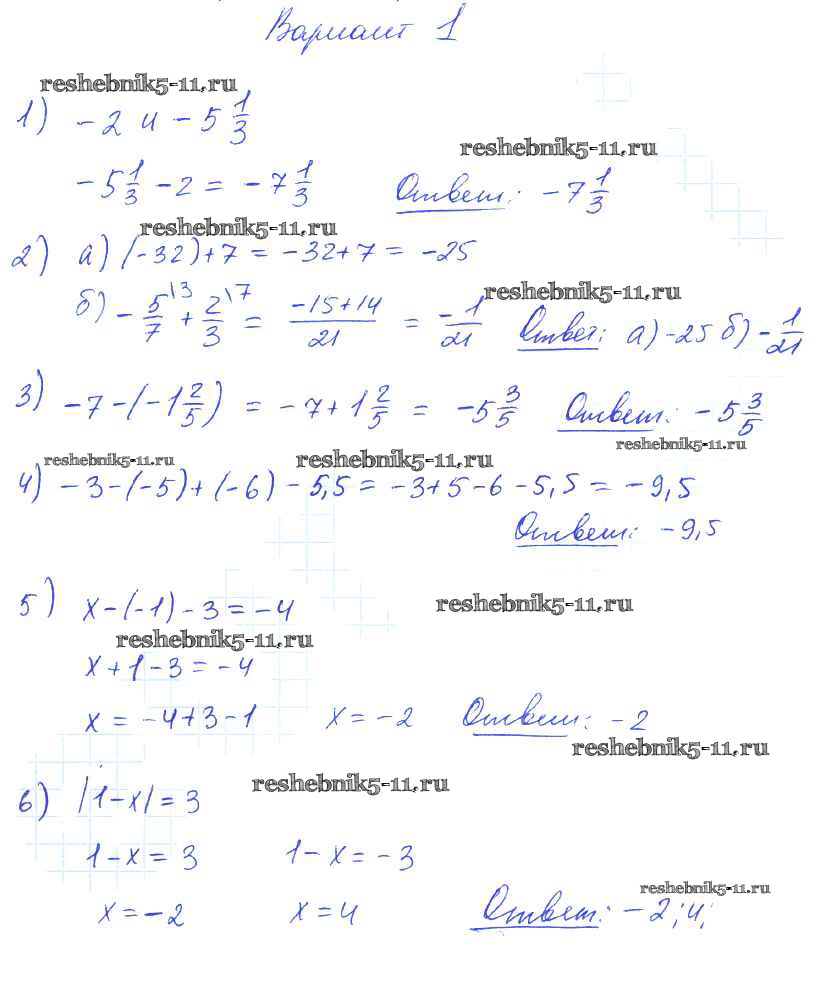 Вариант 1
reshebnik5-11.ru
1) -2 и -5 1/3
reshebnik5-11.ru
-5 1/3 - 2 = -7 1/3 Ответ: -7 1/3
reshebnik5-11.ru
2) а) (-32)+7 = -32+7 = -25
reshebnik5-11.ru
б) -5/7 \3 + 2/3 \7 = (-15+14)/21 = -1/21 Ответ: а) -25 б) -1/21
3) -7-(-1 2/5) = -7+1 2/5 = -5 3/5 Ответ: -5 3/5
reshebnik5-11.ru
reshebnik5-11.ru reshebnik5-11.ru
4) -3-(-5)+(-6)-5,5 = -3+5-6-5,5 = -9,5
Ответ: -9,5
5) x-(-1)-3 = -4 reshebnik5-11.ru
reshebnik5-11.ru
x+1-3 = -4
x = -4+3-1 x = -2 Ответ: -2
reshebnik5-11.ru
6) |1-x| = 3 reshebnik5-11.ru
1-x = 3 1-x = -3
reshebnik5-11.ru
x = -2 x = 4 Ответ: -2; 4;